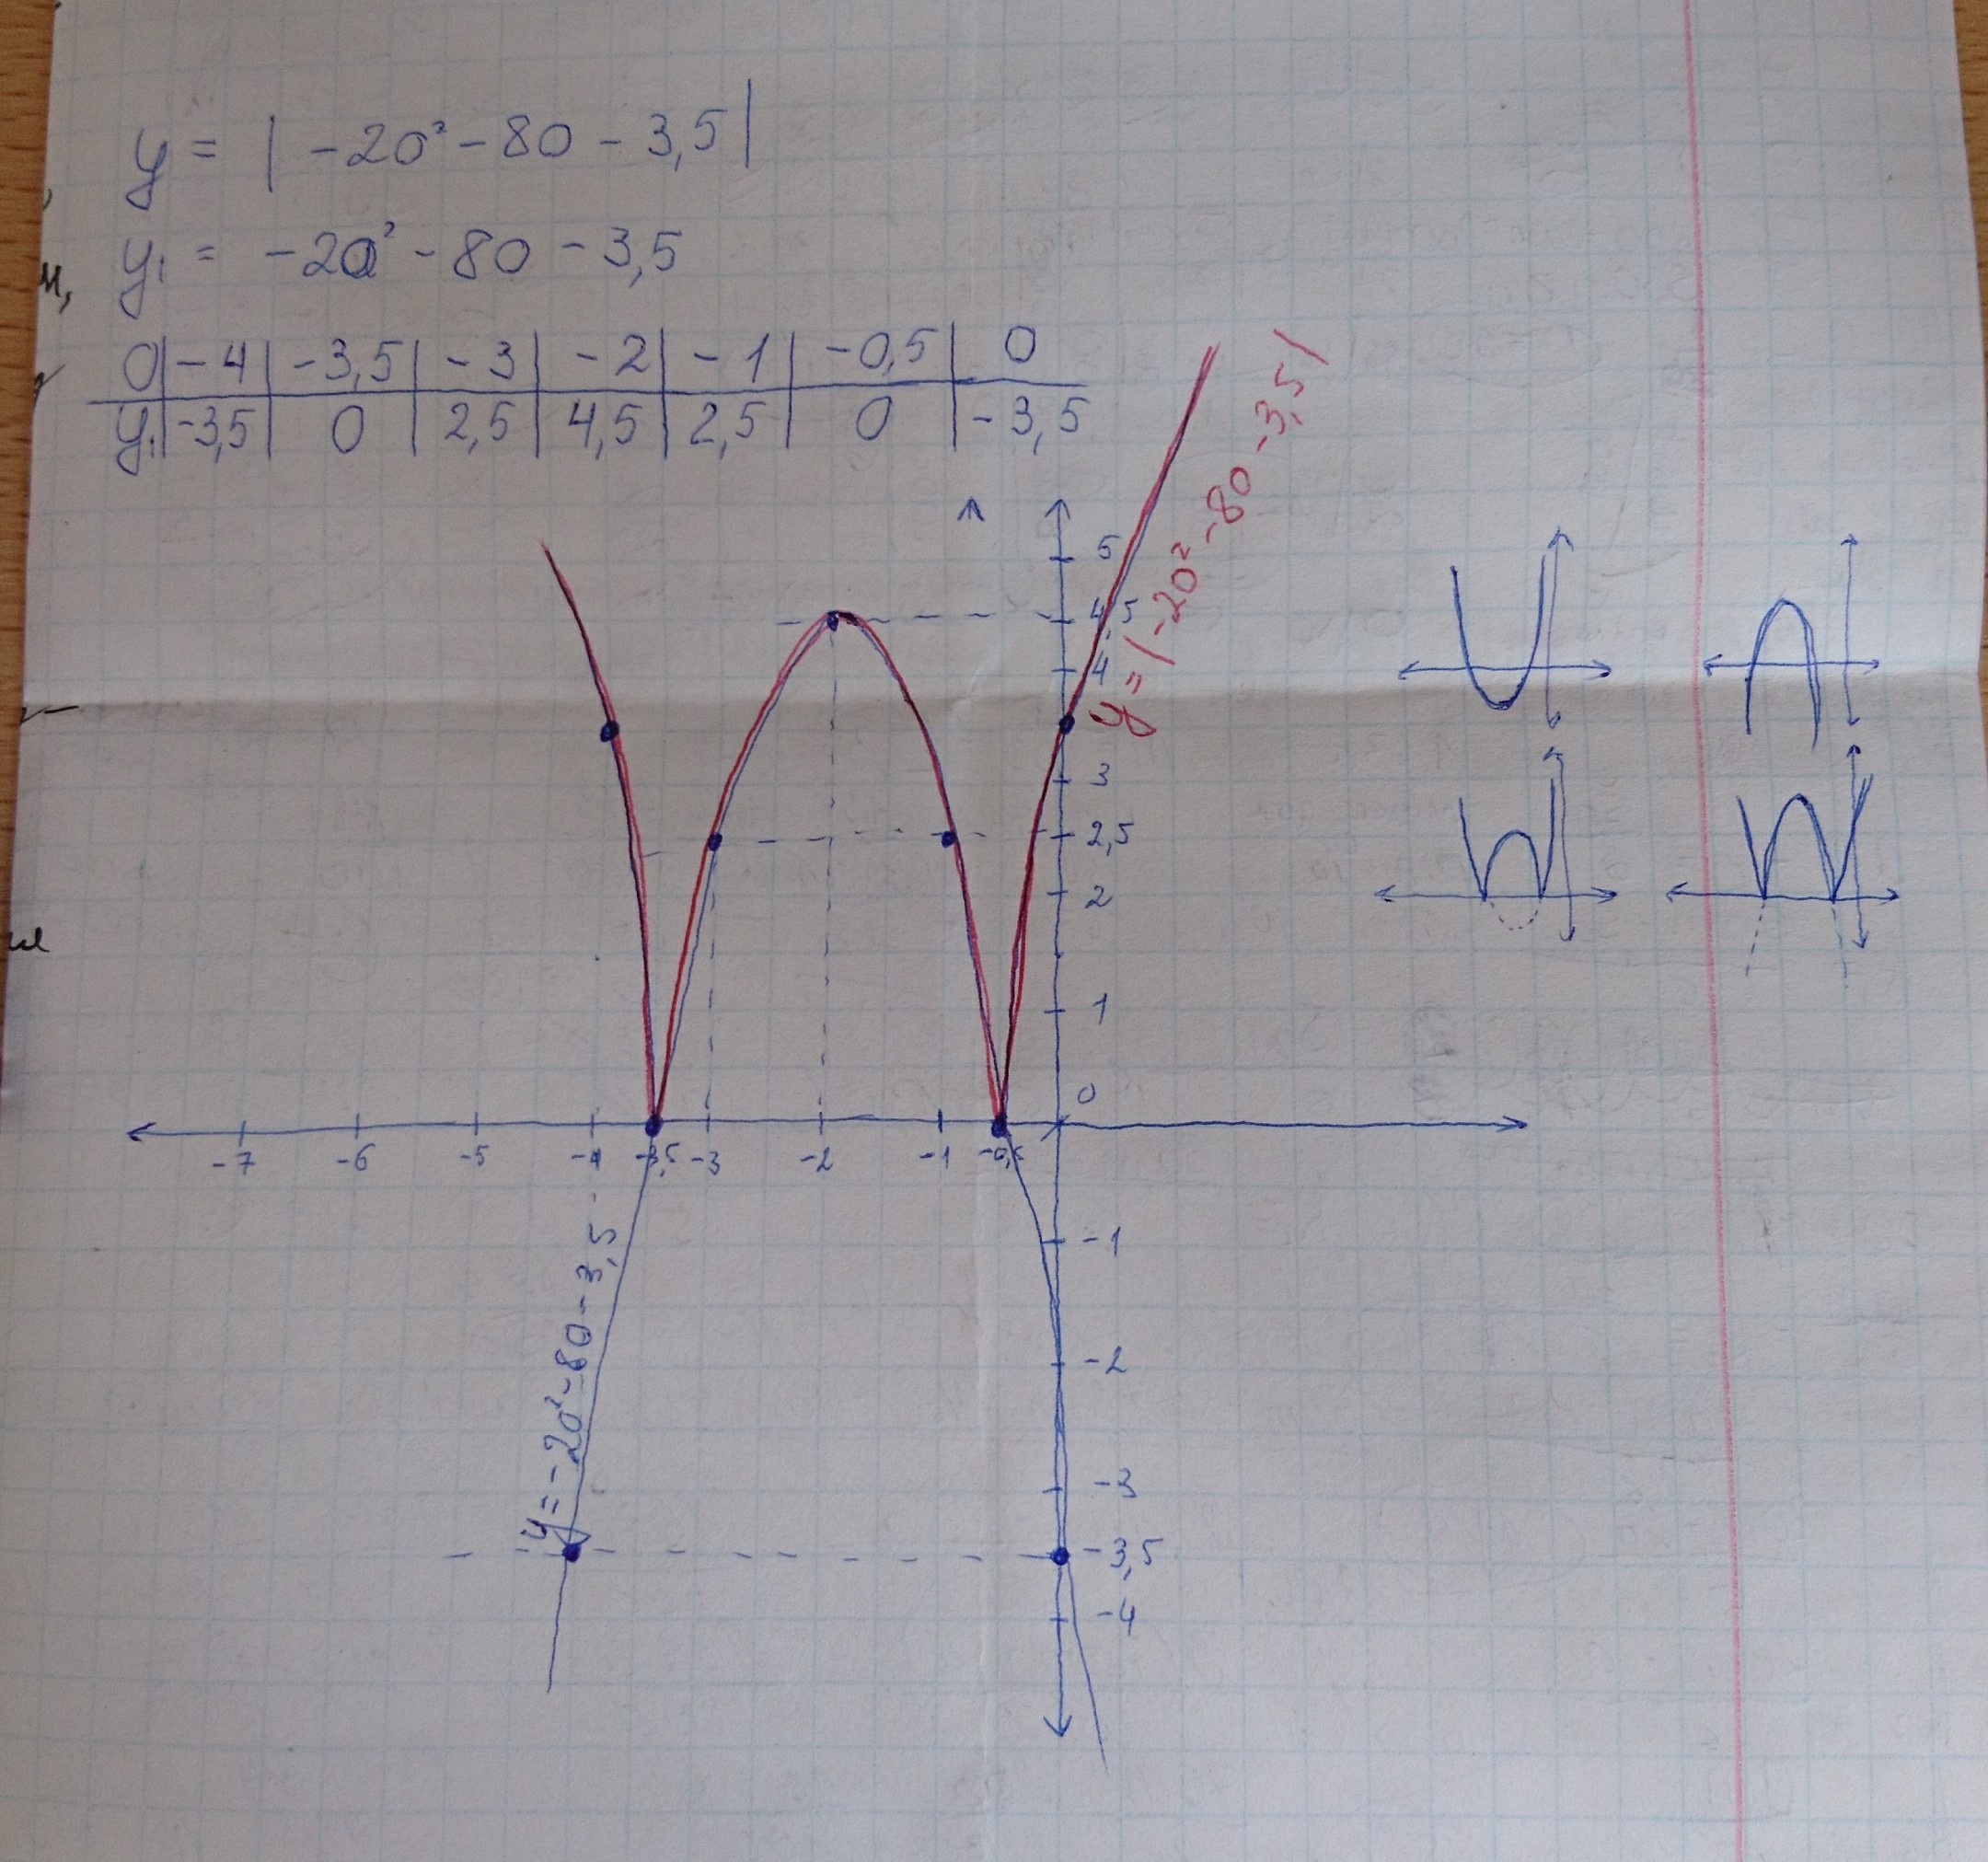 y = | -2a² - 8a - 3,5 |
y₁ = -2a² - 8a - 3,5
a | -4 | -3,5 | -3 | -2 | -1 | -0,5 | 0
y₁ | -3,5 | 0 | 2,5 | 4,5 | 2,5 | 0 | -3,5
y = | -2a² - 8a - 3,5 |
5
4,5
4
3
2,5
2
1
0
-7 -6 -5 -4 -3,5 -3 -2 -1 -0,5
-1
-2
-3
-3,5
-4
y = -2a² - 8a - 3,5